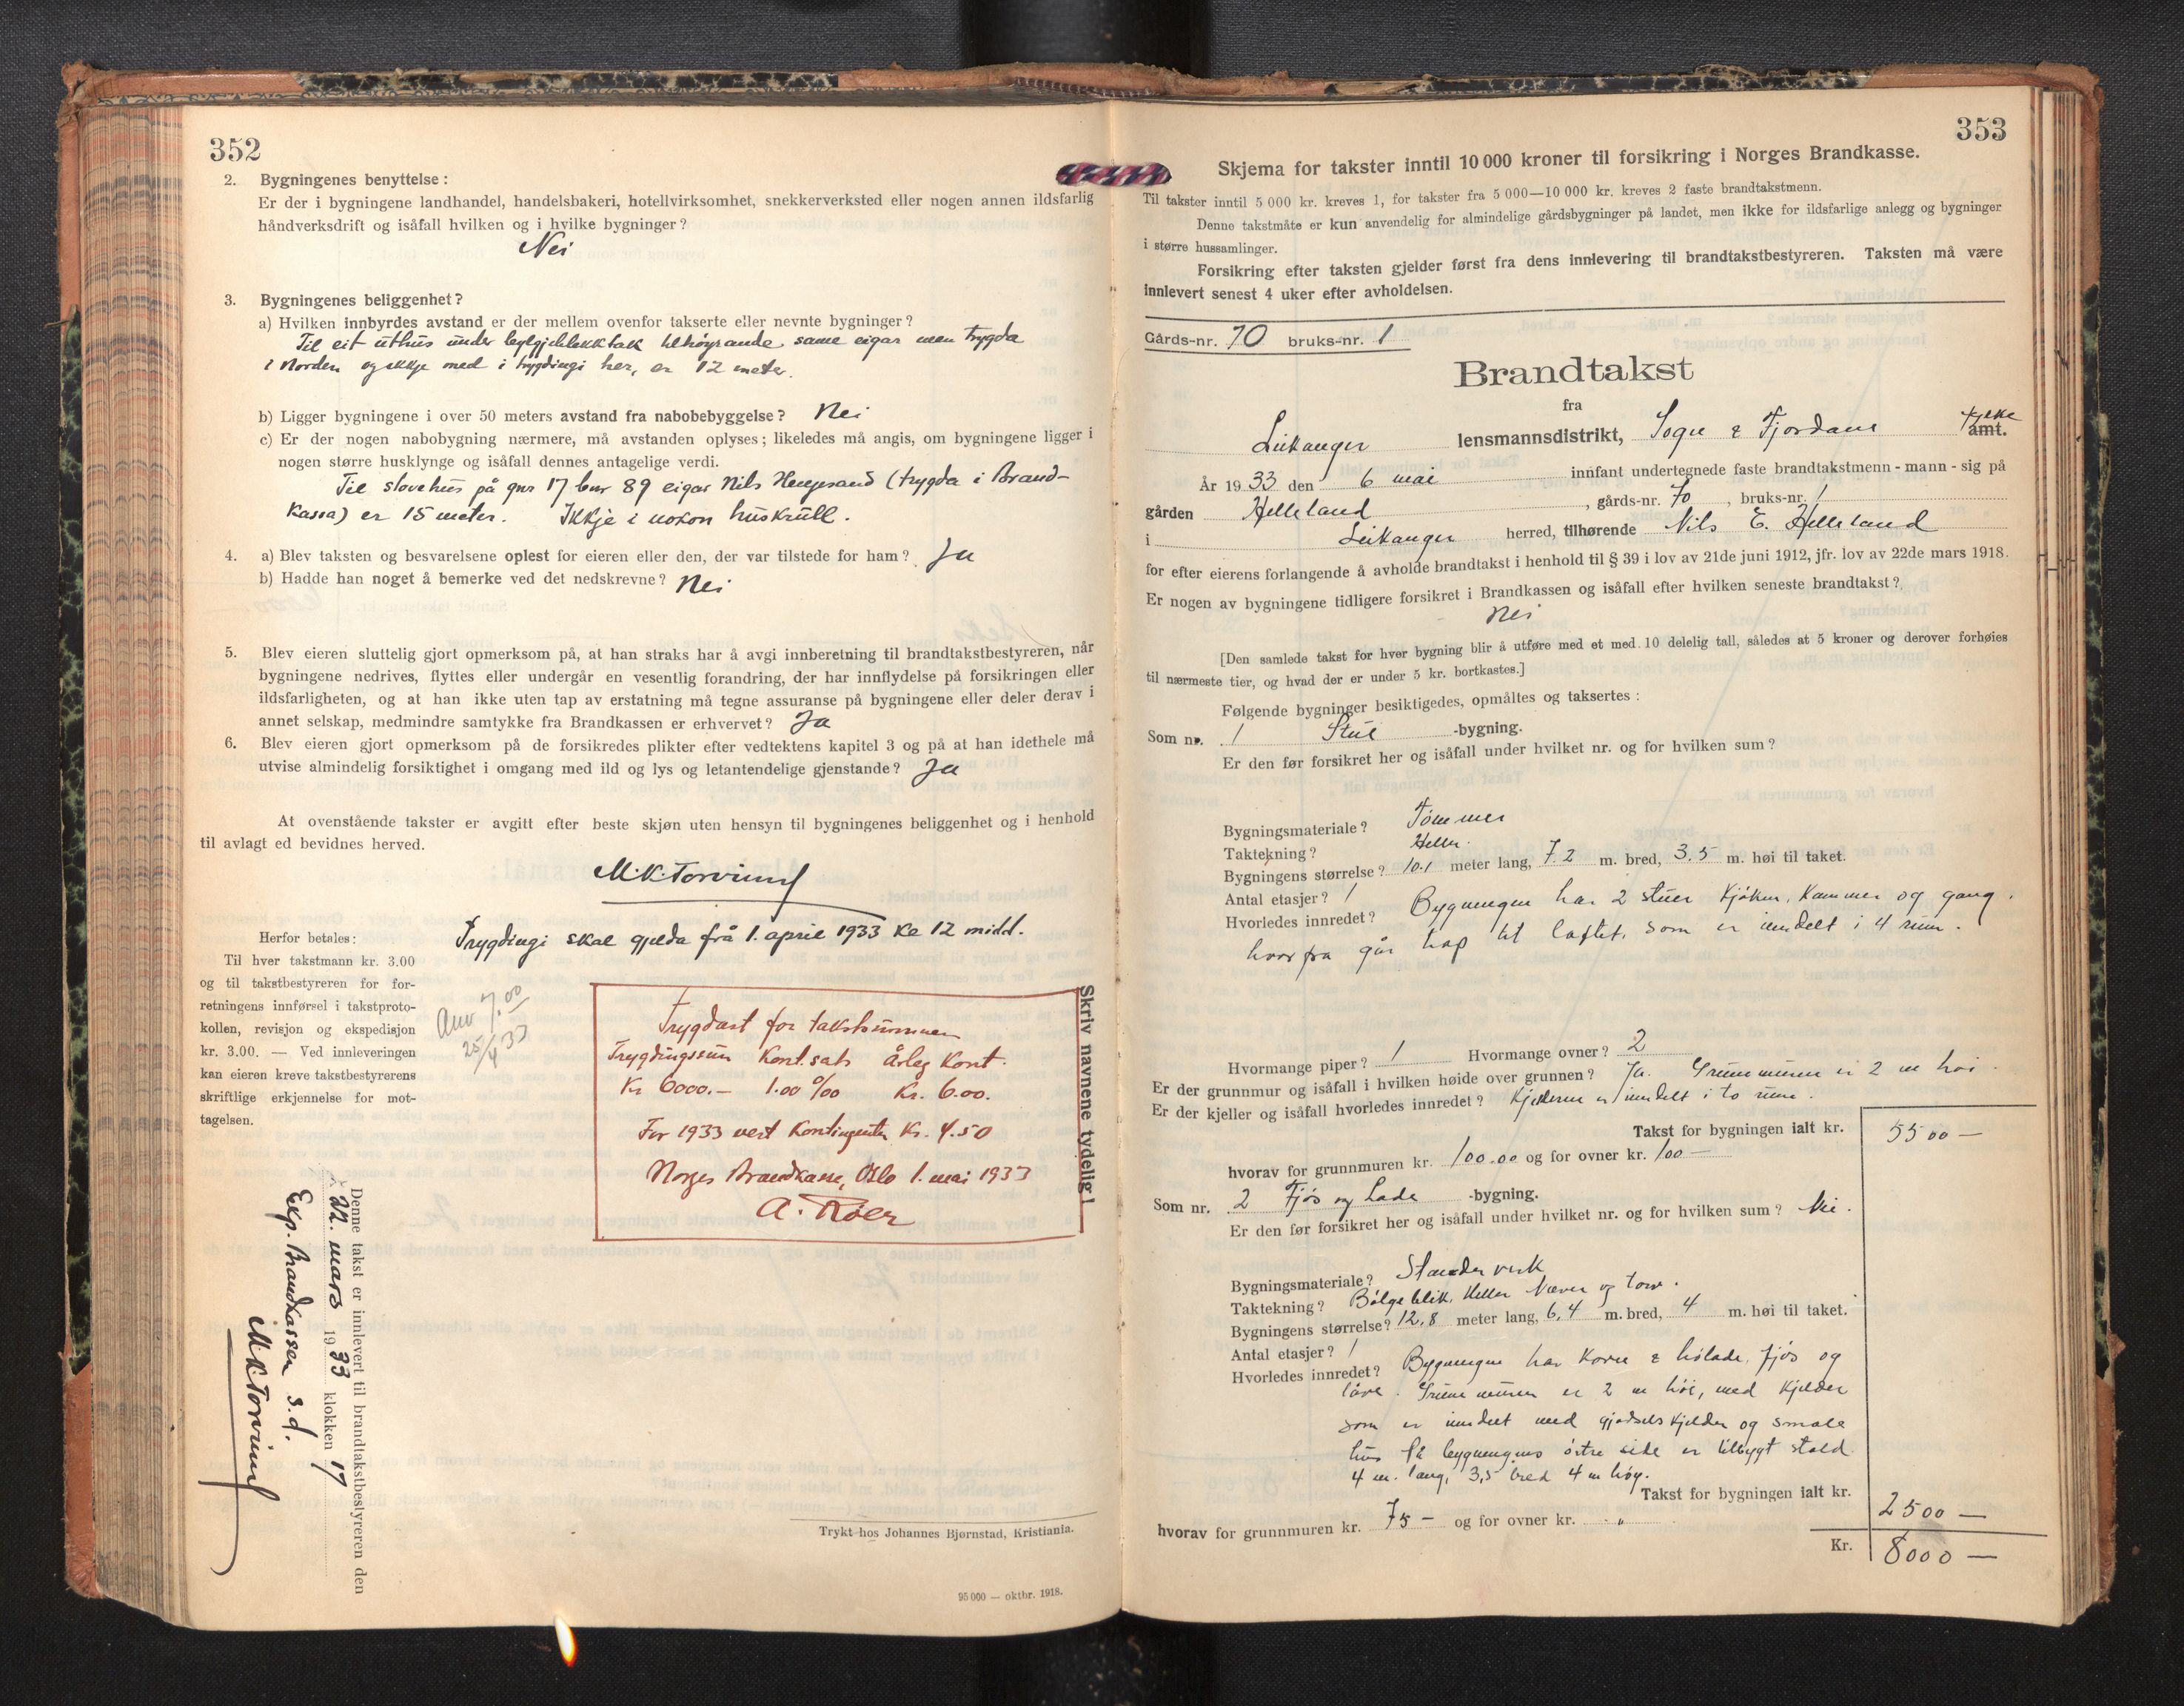 352
2. Bygningenes benyttelse :
Er der i bygningene landhandel, handelsbakeri, hotellvirksomhet, snekkerverksted eller nogen annen ildsfarlig
håndverksdrift og isåfall hvilken og i hvilke bygninger ?
Nei
3. Bygningenes beliggenhet ?
a) Hvilken innbyrdes avstand er der mellem ovenfor takserte eller nevnte bygninger ?
Til eit uthus under bylgjeblekktak tilhøyrande same eigar men trygda
i Norden og ikkje med i trygdingi her, er 12 meter.
b) Ligger bygningene i over 50 meters avstand fra nabobebyggelse ? Nei
c) Er der nogen nabobygning nærmere, må avstanden oplyses ; likeledes må angis, om bygningene ligger i
nogen større husklynge og isåfall dennes antagelige verdi.
Til stovehus på gnr 17 bnr 89 eigar Nils (trygda i Brand-
kassa) er 15 meter. Ikkje i nokon huskrull.
4. a) Blev taksten og besvarelsene oplest for eieren eller den, der var tilstede for ham ? Ja
b) Hadde han noget å bemerke ved det nedskrevne ? Nei
5. Blev eieren sluttelig gjort opmerksom på, at han straks har å avgi innberetning til brandtakstbestyreren, når
bygningene nedrives, flyttes eller undergår en vesentlig forandring, der har innflydelse på forsikringen eller
ildsfarligheten, og at han ikke uten tap av erstatning må tegne assuranse på bygningene eller deler derav i
annet selskap, medmindre samtykke fra Brandkassen er erhvervet ? Ja
6. Blev eieren gjort opmerksom på de forsikredes plikter efter vedtektens kapitel 3 og på at han idethele må
utvise almindelig forsiktighet i omgang med ild og lys og letantendelige gjenstande ? Ja
At ovenstående takster er avgitt efter beste skjøn uten hensyn til bygningenes beliggenhet og i henhold
til avlagt ed bevidnes herved.
M.K. Torvund
Trygdingi skal gjelda frå 1. april 1933 kl 12 midd.
Herfor betales :
Til hver takstmann kr. 3.00
og til takstbestyreren for for-
retningens innførsel i takstproto-
kollen, revisjon og ekspedisjon
kr. 3.00. — Ved innleveringen
kan eieren kreve takstbestyrerens
skriftlige erkjennelse for mot-
tagelsen.
Anv 7.00
25/4 33
Trygdast for takstsummen
Trygdingssum Kont.sats Årleg Kont.
Kr 6000.— 1.00 ‰ Kr. 6.00.
For 1933 vert Kontingenten Kr. 4.50
Norges Brandkasse, Oslo 1. mai 1933
A. Röer
Skriv navnene tydelig !
Denne takst er innlevert til brandtakstbestyreren den
22. mars 1933 klokken 17
Exp. Brandkassen s.d.
M.K. Torvund
Trykt hos Johannes Bjørnstad, Kristiania.
95 000 — oktbr. 1918.
353
Skjema for takster inntil 10 000 kroner til forsikring i Norges Brandkasse.
Til takster inntil 5 000 kr. kreves 1, for takster fra 5 000—10 000 kr. kreves 2 faste brandtakstmenn.
Denne takstmåte er kun anvendelig for almindelige gårdsbygninger på landet, men ikke for ildsfarlige anlegg og bygninger
i større hussamlinger.
Forsikring efter taksten gjelder først fra dens innlevering til brandtakstbestyreren. Taksten må være
innlevert senest 4 uker efter avholdelsen.
Gårds-nr. 70 bruks-nr. 1
Brandtakst
fra
Leikanger lensmannsdistrikt, Sogn & Fjordane fylke amt.
År 1933 den 6 mai innfant undertegnede faste brandtakstmenn - mann - sig på
gården Helleland , gårds-nr. 70 , bruks-nr. 1
i Leikanger herred, tilhørende Nils E. Helleland
for efter eierens forlangende å avholde brandtakst i henhold til § 39 i lov av 21de juni 1912, jfr. lov av 22de mars 1918.
Er nogen av bygningene tidligere forsikret i Brandkassen og isåfall efter hvilken seneste brandtakst ?
Nei
[Den samlede takst for hver bygning blir å utføre med et med 10 delelig tall, således at 5 kroner og derover forhøies
til nærmeste tier, og hvad der er under 5 kr. bortkastes.]
Følgende bygninger besiktigedes, opmåltes og taksertes :
Som nr. 1 Stue -bygning.
Er den før forsikret her og isåfall under hvilket nr. og for hvilken sum ?
Bygningsmateriale ? Tømmer
Taktekning ? Heller.
Bygningens størrelse ? 10.1 meter lang, 7.2 m. bred, 3.5 m. høi til taket.
Antal etasjer ? 1
Hvorledes innredet ? Bygningen har 2 stuer kjøken, kammer og gang,
hvorfra går trap til loftet, som er inndelt i 4 rum.
Hvormange piper ? 1 Hvormange ovner ? 2
Er der grunnmur og isåfall i hvilken høide over grunnen ? Ja. Grunnmuren er 2 m høi.
Er der kjeller og isåfall hvorledes innredet ? Kjelleren er inndelt i to rum.
Takst for bygningen ialt kr. 5500 —
hvorav for grunnmuren kr. 100.00 og for ovner kr. 100 —
Som nr. 2 Fjøs og Lade -bygning.
Er den før forsikret her og isåfall under hvilket nr. og for hvilken sum ? Nei.
Bygningsmateriale ? Standerverk
Taktekning ? Bølgeblik, Heller Næver og torv.
Bygningens størrelse ? 12,8 meter lang, 6,4 m. bred, 4 m. høi til taket.
Antal etasjer ? 1
Hvorledes innredet ? Bygningen har korn & hølade, fjøs og
låve. Grunnmuren er 2 m høi, med kjelder
som er inndelt med gjødselskjelder og smale
hus På bygningens østre side er tilbygt stald
4 m. lang, 3,5 bred 4 m høy.
Takst for bygningen ialt kr. 2500 —
hvorav for grunnmuren kr. 75 — og for ovner kr. „
Kr. 8000 —